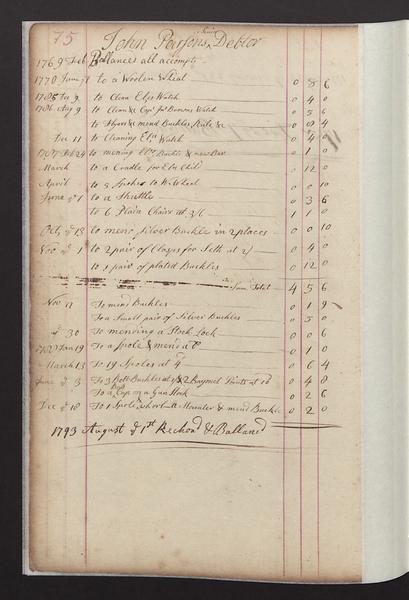 75 John Parsons Junr Debtor
1769 Feb Ballances all accompts
1770 June to a Woolen Wheal 0 8 6
1785 to Clean Watch 0 4 0
1786 Aug 9 to Clean Watch 0 5 0
to mend Buckles
Dec 11 to Cleaning Watch 0 4 0
1787 to mening 0 1 0
March to a Cradle for Child 0 12 0
April to 5 Spokes to W. Wheel 0 0 10
June to a Shuttle 0 3 6
to 6 Plain Chairs at 3/6 1 1 0
to mend Silver Buckle in 2 places 0 0 10
Nov ye 1 to 2 pair of Clasps for Seth at 2/ 0 4 0
to 1 pair of plated Buckles 0 12 0
Sum Total 4 5 6
Nov 12 To mend Buckles 0 1 9
To a Small pair of Silver Buckles 0 5 0
ye 30 To mending a Stock Lock 0 0 6
Jan 19 To a Spole & mend 0 1 0
March 13 To 19 Spoles at 4d 0 6 4
June ye 3 To 3 Buckles at & 2 Bayonet 0 4 8
To a Cap on a Gun Stock 0 2 6
Dec ye 18 To 1 Spole & mend Buckle 0 2 0
1793 August ye 1st Reckond & Balland